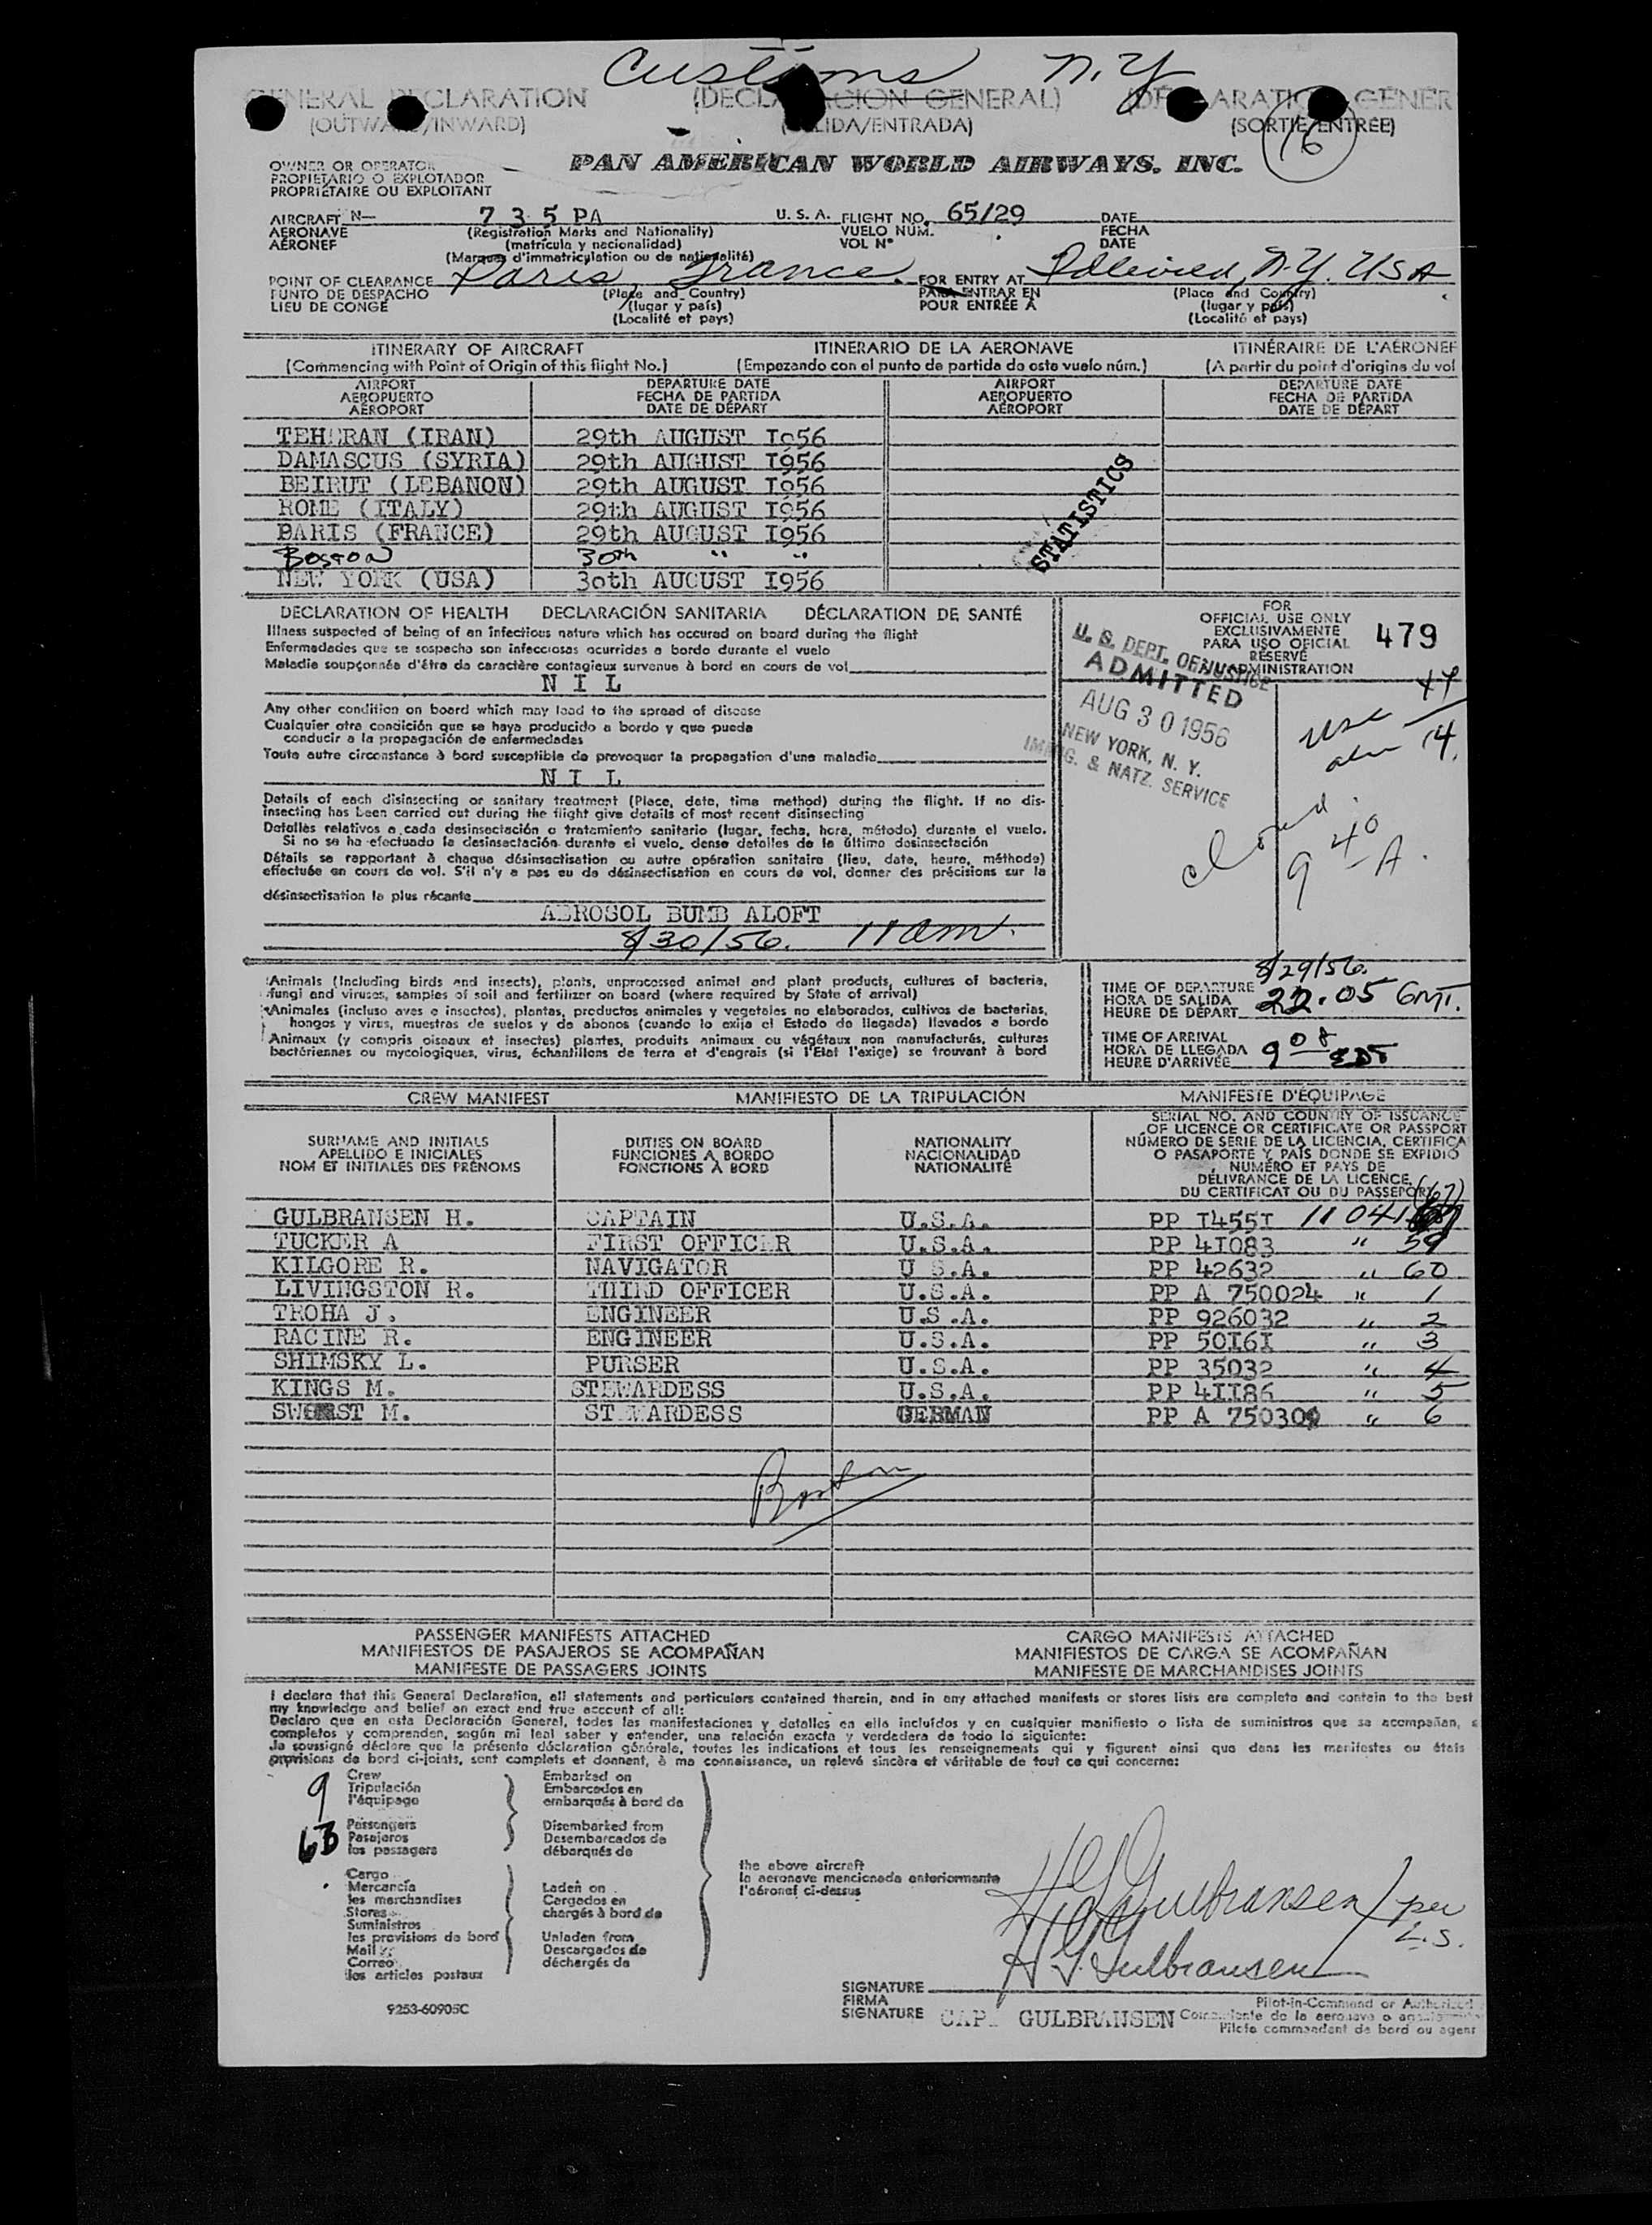 Customs N.Y
GENERAL DECLARATION (DECLARACION GENERAL) (DÉCLARATION GÉNÉR
(OUTWARD/INWARD) (SALIDA/ENTRADA) (SORTIE/ENTRÉE)
16
OWNER OR OPERATOR
PROPIETARIO O EXPLOTADOR
PROPRIÉTAIRE OU EXPLOITANT
PAN AMERICAN WORLD AIRWAYS, INC.
AIRCRAFT N— 7 3 5 PA U. S. A. FLIGHT NO. 65/29 DATE
AERONAVE (Registration Marks and Nationality) VUELO NÚM. FECHA
AÉRONEF (matrícula y nacionalidad) VOL Nº DATE
(Marques d'immatriculation ou de nationalité)
POINT OF CLEARANCE Paris, France FOR ENTRY AT Idlewild, N.Y. USA
PUNTO DE DESPACHO (Place and Country) PARA ENTRAR EN (Place and Country)
LIEU DE CONGÉ (lugar y país) POUR ENTRÉE À (lugar y país)
(Localité et pays) (Localité et pays)
ITINERARY OF AIRCRAFT ITINERARIO DE LA AERONAVE ITINÉRAIRE DE L'AÉRONEF
(Commencing with Point of Origin of this flight No.) (Empezando con el punto de partida de este vuelo núm.) (A partir du point d'origine du vol
AIRPORT DEPARTURE DATE AIRPORT DEPARTURE DATE
AEROPUERTO FECHA DE PARTIDA AEROPUERTO FECHA DE PARTIDA
AÉROPORT DATE DE DÉPART AÉROPORT DATE DE DÉPART
TEHERAN (IRAN) 29th AUGUST I956
DAMASCUS (SYRIA) 29th AUGUST I956
BEIRUT (LEBANON) 29th AUGUST I956
ROME (ITALY) 29th AUGUST I956
PARIS (FRANCE) 29th AUGUST I956
BOSTON 30th " "
NEW YORK (USA) 3oth AUGUST I956
STATISTICS
DECLARATION OF HEALTH DECLARACIÓN SANITARIA DÉCLARATION DE SANTÉ
Illness suspected of being of an infectious nature which has occured on board during the flight
Enfermedades que se sospecha son infecciosas ocurridas a bordo durante el vuelo
Maladie soupçonnée d'être de caractère contagieux survenue à bord en cours de vol
N I L
Any other condition on board which may lead to the spread of disease
Cualquier otra condición que se haya producido a bordo y que pueda
conducir a la propagación de enfermedades
Toute autre circonstance à bord susceptible de provoquer la propagation d'une maladie
N I L
Details of each disinsecting or sanitary treatment (Place, date, time method) during the flight. If no dis-
insecting has been carried out during the flight give details of most recent disinsecting
Detalles relativos a cada desinsectación o tratamiento sanitario (lugar, fecha, hora, método) durante el vuelo.
Si no se ha efectuado la desinsectación durante el vuelo, dense detalles de la última desinsectación
Détails se rapportant à chaque désinsectisation ou autre opération sanitaire (lieu, date, heure, méthode)
effectuée en cours de vol. S'il n'y a pas eu de désinsectisation en cours de vol, donner des précisions sur la
désinsectisation la plus récente
AEROSOL BUMB ALOFT
8/30/56. 11 am.
FOR
OFFICIAL USE ONLY
EXCLUSIVAMENTE
PARA USO OFICIAL
RÉSERVÉ
ADMINISTRATION
479
U. S. DEPT. OF JUSTICE
ADMITTED
AUG 30 1956
NEW YORK, N. Y.
IMMIG. & NATZ. SERVICE
usc 47
aln 14.
Closed
9 40 A.
Animals (Including birds and insects), plants, unprocessed animal and plant products, cultures of bacteria,
fungi and viruses, samples of soil and fertilizer on board (where required by State of arrival)
Animales (incluso aves e insectos), plantas, productos animales y vegetales no elaborados, cultivos de bacterias,
hongos y virus, muestras de suelos y de abonos (cuando lo exija el Estado de llegada) llevados a bordo
Animaux (y compris oiseaux et insectes) plantes, produits animaux ou végétaux non manufacturés, cultures
bactériennes ou mycologiques, virus, échantillons de terre et d'engrais (si l'Etat l'exige) se trouvant à bord
8/29/56.
TIME OF DEPARTURE
HORA DE SALIDA 22.05 GMT.
HEURE DE DÉPART
TIME OF ARRIVAL
HORA DE LLEGADA 9 08 EDT
HEURE D'ARRIVÉE
CREW MANIFEST MANIFIESTO DE LA TRIPULACIÓN MANIFESTE D'ÉQUIPAGE
SURNAME AND INITIALS
APELLIDO E INICIALES
NOM ET INITIALES DES PRÉNOMS
DUTIES ON BOARD
FUNCIONES A BORDO
FONCTIONS À BORD
NATIONALITY
NACIONALIDAD
NATIONALITÉ
SERIAL NO. AND COUNTRY OF ISSUANCE
OF LICENCE OR CERTIFICATE OR PASSPORT
NÚMERO DE SERIE DE LA LICENCIA, CERTIFICA
O PASAPORTE Y PAÍS DONDE SE EXPIDIÓ
NUMÉRO ET PAYS DE
DÉLIVRANCE DE LA LICENCE,
DU CERTIFICAT OU DU PASSEPORT
(67)
GULBRANSEN H. CAPTAIN U.S.A. PP I455I 11041
TUCKER A FIRST OFFICER U.S.A. PP 4I083 " 59
KILGORE R. NAVIGATOR U S.A. PP 42632 " 60
LIVINGSTON R. THIRD OFFICER U.S.A. PP A 750024 " 1
TROHA J. ENGINEER U.S .A. PP 926032 " 2
RACINE R. ENGINEER U.S.A. PP 50I6I " 3
SHIMSKY L. PURSER U.S.A. PP 35032 " 4
KINGS M. STEWARDESS U.S.A. PP 4II86 " 5
M. STEWARDESS GERMAN PP A 75030 " 6
Boston
PASSENGER MANIFESTS ATTACHED CARGO MANIFESTS ATTACHED
MANIFIESTOS DE PASAJEROS SE ACOMPAÑAN MANIFIESTOS DE CARGA SE ACOMPAÑAN
MANIFESTE DE PASSAGERS JOINTS MANIFESTE DE MARCHANDISES JOINTS
I declare that this General Declaration, all statements and particulars contained therein, and in any attached manifests or stores lists are complete and contain to the best
my knowledge and belief an exact and true account of all:
Declaro que en esta Declaración General, todas las manifestaciones y detalles en ella incluídos y en cualquier manifiesto o lista de suministros que se acompañan,
completos y comprenden, según mi leal saber y entender, una relación exacta y verdadera de todo lo siguiente:
Je soussigné déclare que la présente déclaration générale, toutes les indications et tous les renseignements qui y figurent ainsi que dans les manifestes ou états
provisions de bord ci-joints, sont complets et donnent, à ma connaissance, un relevé sincère et véritable de tout ce qui concerne:
9
Crew
Tripulación
l'équipage
63
Passengers
Pasajeros
les passagers
Cargo
Mercancía
les marchandises
Stores
Suministros
les provisions de bord
Mail
Correo
les articles postaux
Embarked on
Embarcados en
embarqués à bord de
Disembarked from
Desembarcados de
débarqués de
Laden on
Cargados en
chargés à bord de
Unladen from
Descargados de
déchargés de
the above aircraft
la aeronave mencionada anteriormente
l'aéronef ci-dessus
H G Gulbransen/per
L.S.
H G Gulbransen
SIGNATURE
FIRMA
SIGNATURE CAP. GULBRANSEN
Pilot-in-Command or Authorized
Comandante de la aeronave o
Pilote commandant de bord ou agent
9253-60905C